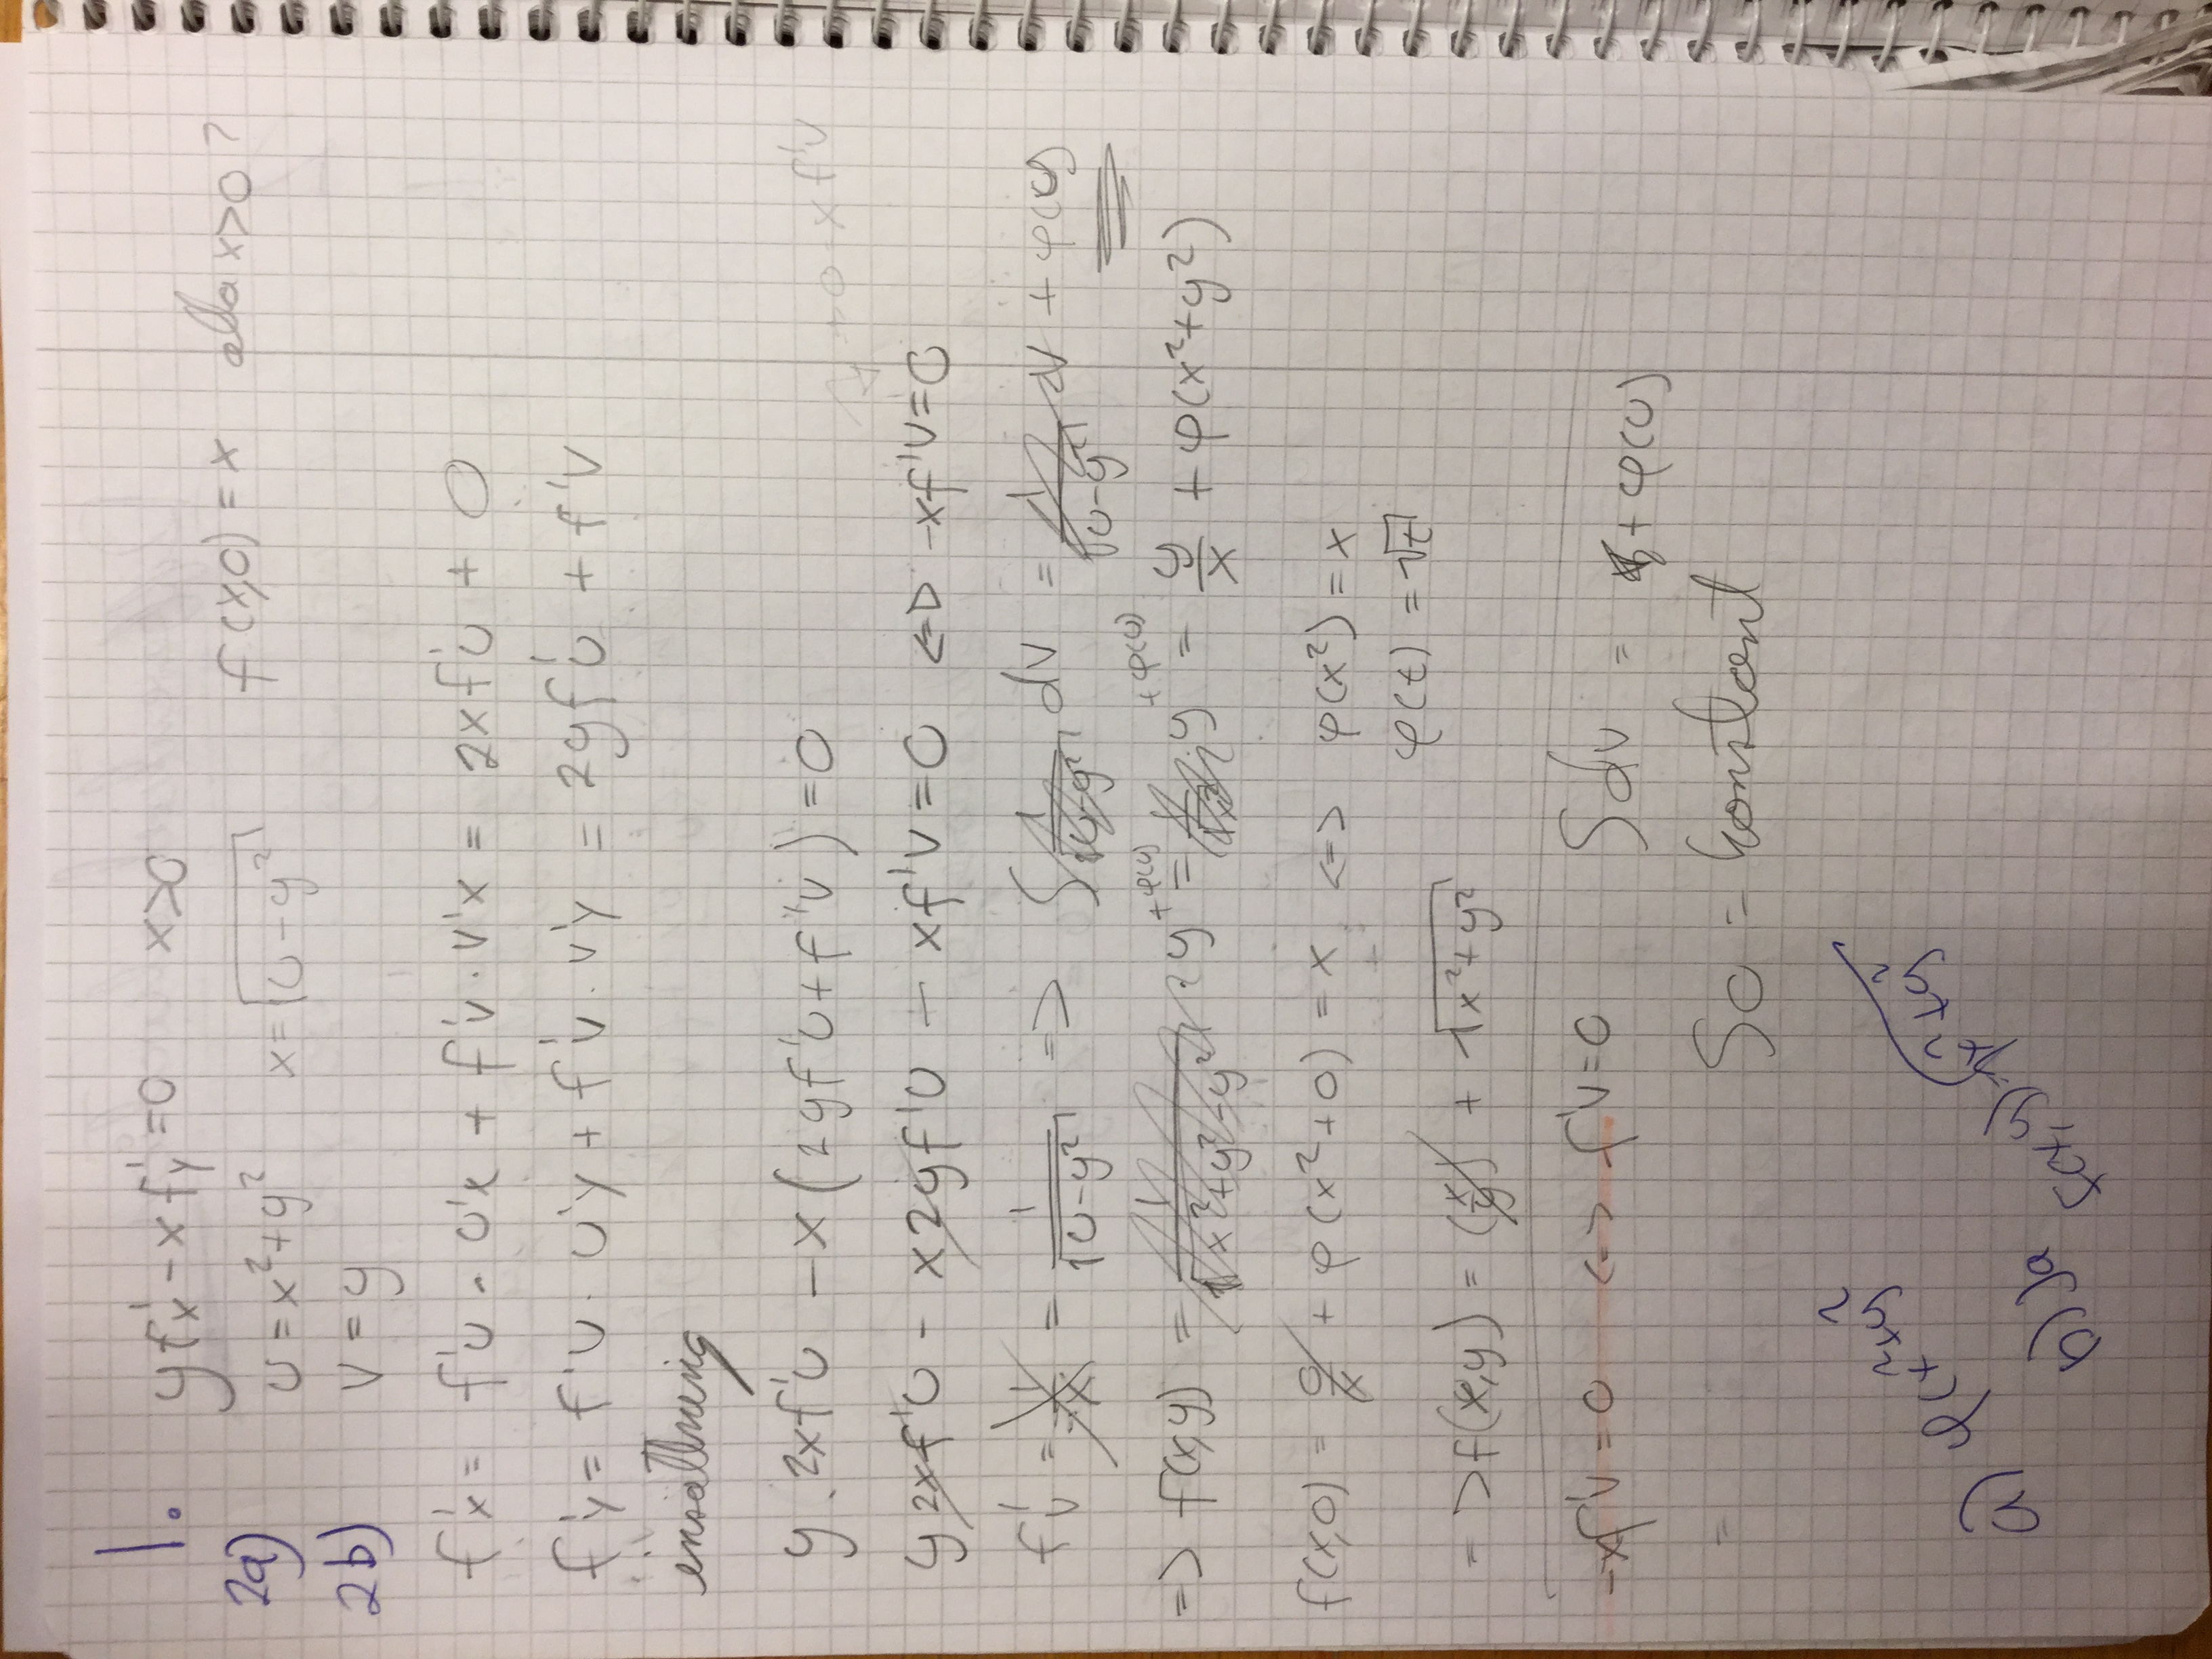 1. yf'x - xf'y = 0 x>0
2a) u = x²+y² x = √(u-y²) f(x,0) = x alla x>0?
2b) v = y
f'x = f'u · u'x + f'v · v'x = 2xf'u + 0
f'y = f'u · u'y + f'v · v'y = 2yf'u + f'v
insättning
y · 2xf'u - x(2yf'u + f'v) = 0
y2xf'u - x2yf'u - xf'v = 0 <=> -xf'v = 0
f'v = 1/-x = 1/√(u-y²) => ∫ 1/√(u-y²) dv = 1/√(u-y²) · v + φ(u)
=> f(x,y) = 1/√(x²+y²-y²) · y + φ(u) = 1/√x² · y + φ(u) = y/x + φ(x²+y²)
f(x,0) = 0/x + φ(x²+0) = x <=> φ(x²) = x
φ(t) = √t
=> f(x,y) = (x/y) + √(x²+y²)
-xf'v = 0 <=> f'v = 0 ∫dv = + φ(u)
= ∫0 = konstant
a) φ(x²+y²
b) Ja f(x,y) = √(x²+y²)